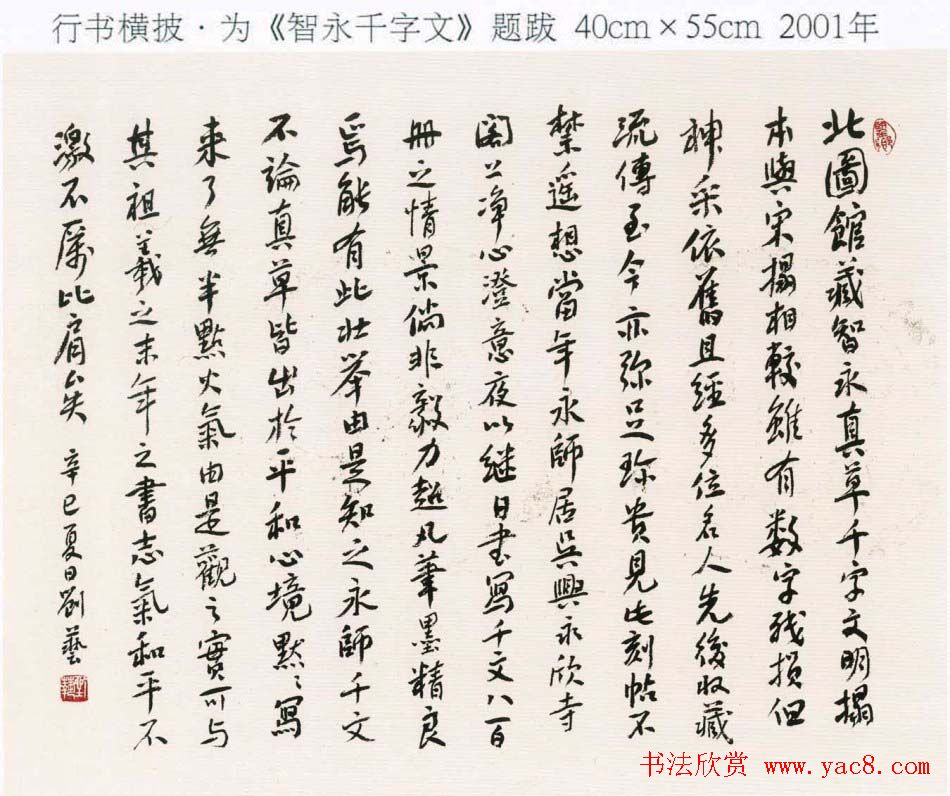 行书横披·为《智永千字文》题跋 40cm×55cm 2001年
北圖館藏智永真草千字文明搨
本與宋搨相較雖有数字残损但
神采依舊且經多位名人先後收藏
流傳至今亦弥足珍贵見此刻帖不
禁遥想當年永師居吴興永欣寺
閣上净心澄意夜以继日書寫千文八百
册之情景倘非毅力超凡筆墨精良
焉能有此壮举由是知之永師千文
不論真草皆出於平和心境默〻寫
来了無半點火氣由是觀之實可与
其祖羲之末年之書志氣和平不
激不厲比肩矣 辛巳夏日劉藝
书法欣赏 www.yac8.com